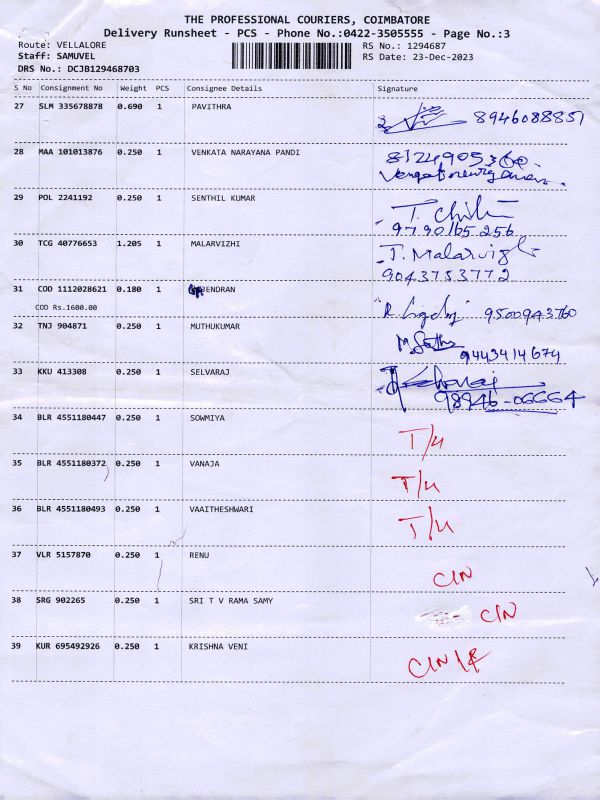 THE PROFESSIONAL COURIERS, COIMBATORE
Delivery Runsheet - PCS - Phone No.:0422-3505555 - Page No.:3
Route: VELLALORE RS No.: 1294687
Staff: SAMUVEL RS Date: 23-Dec-2023
DRS No.: DCJB129468703
S No Consignment No Weight PCS Consignee Details Signature
27 SLM 335678878 0.690 1 PAVITHRA 8946088851
28 MAA 101013876 0.250 1 VENKATA NARAYANA PANDI
29 POL 2241192 0.250 1 SENTHIL KUMAR
9790165256
30 TCG 40776653 1.205 1 MALARVIZHI T. Malarvizhi
9043753772
31 COD 1112028621 0.180 1
COD Rs.1600.00 9500943760
32 TNJ 904871 0.250 1 MUTHUKUMAR
9443414674
33 KKU 413308 0.250 1 SELVARAJ
98946-06664
34 BLR 4551180447 0.250 1 SOWMIYA T/U
35 BLR 4551180372 0.250 1 VANAJA T/U
36 BLR 4551180493 0.250 1 VAAITHESHWARI T/U
37 VLR 5157870 0.250 1 RENU CIN
38 SRG 902265 0.250 1 SRI T V RAMA SAMY CIN
39 KUR 695492926 0.250 1 KRISHNA VENI CIN